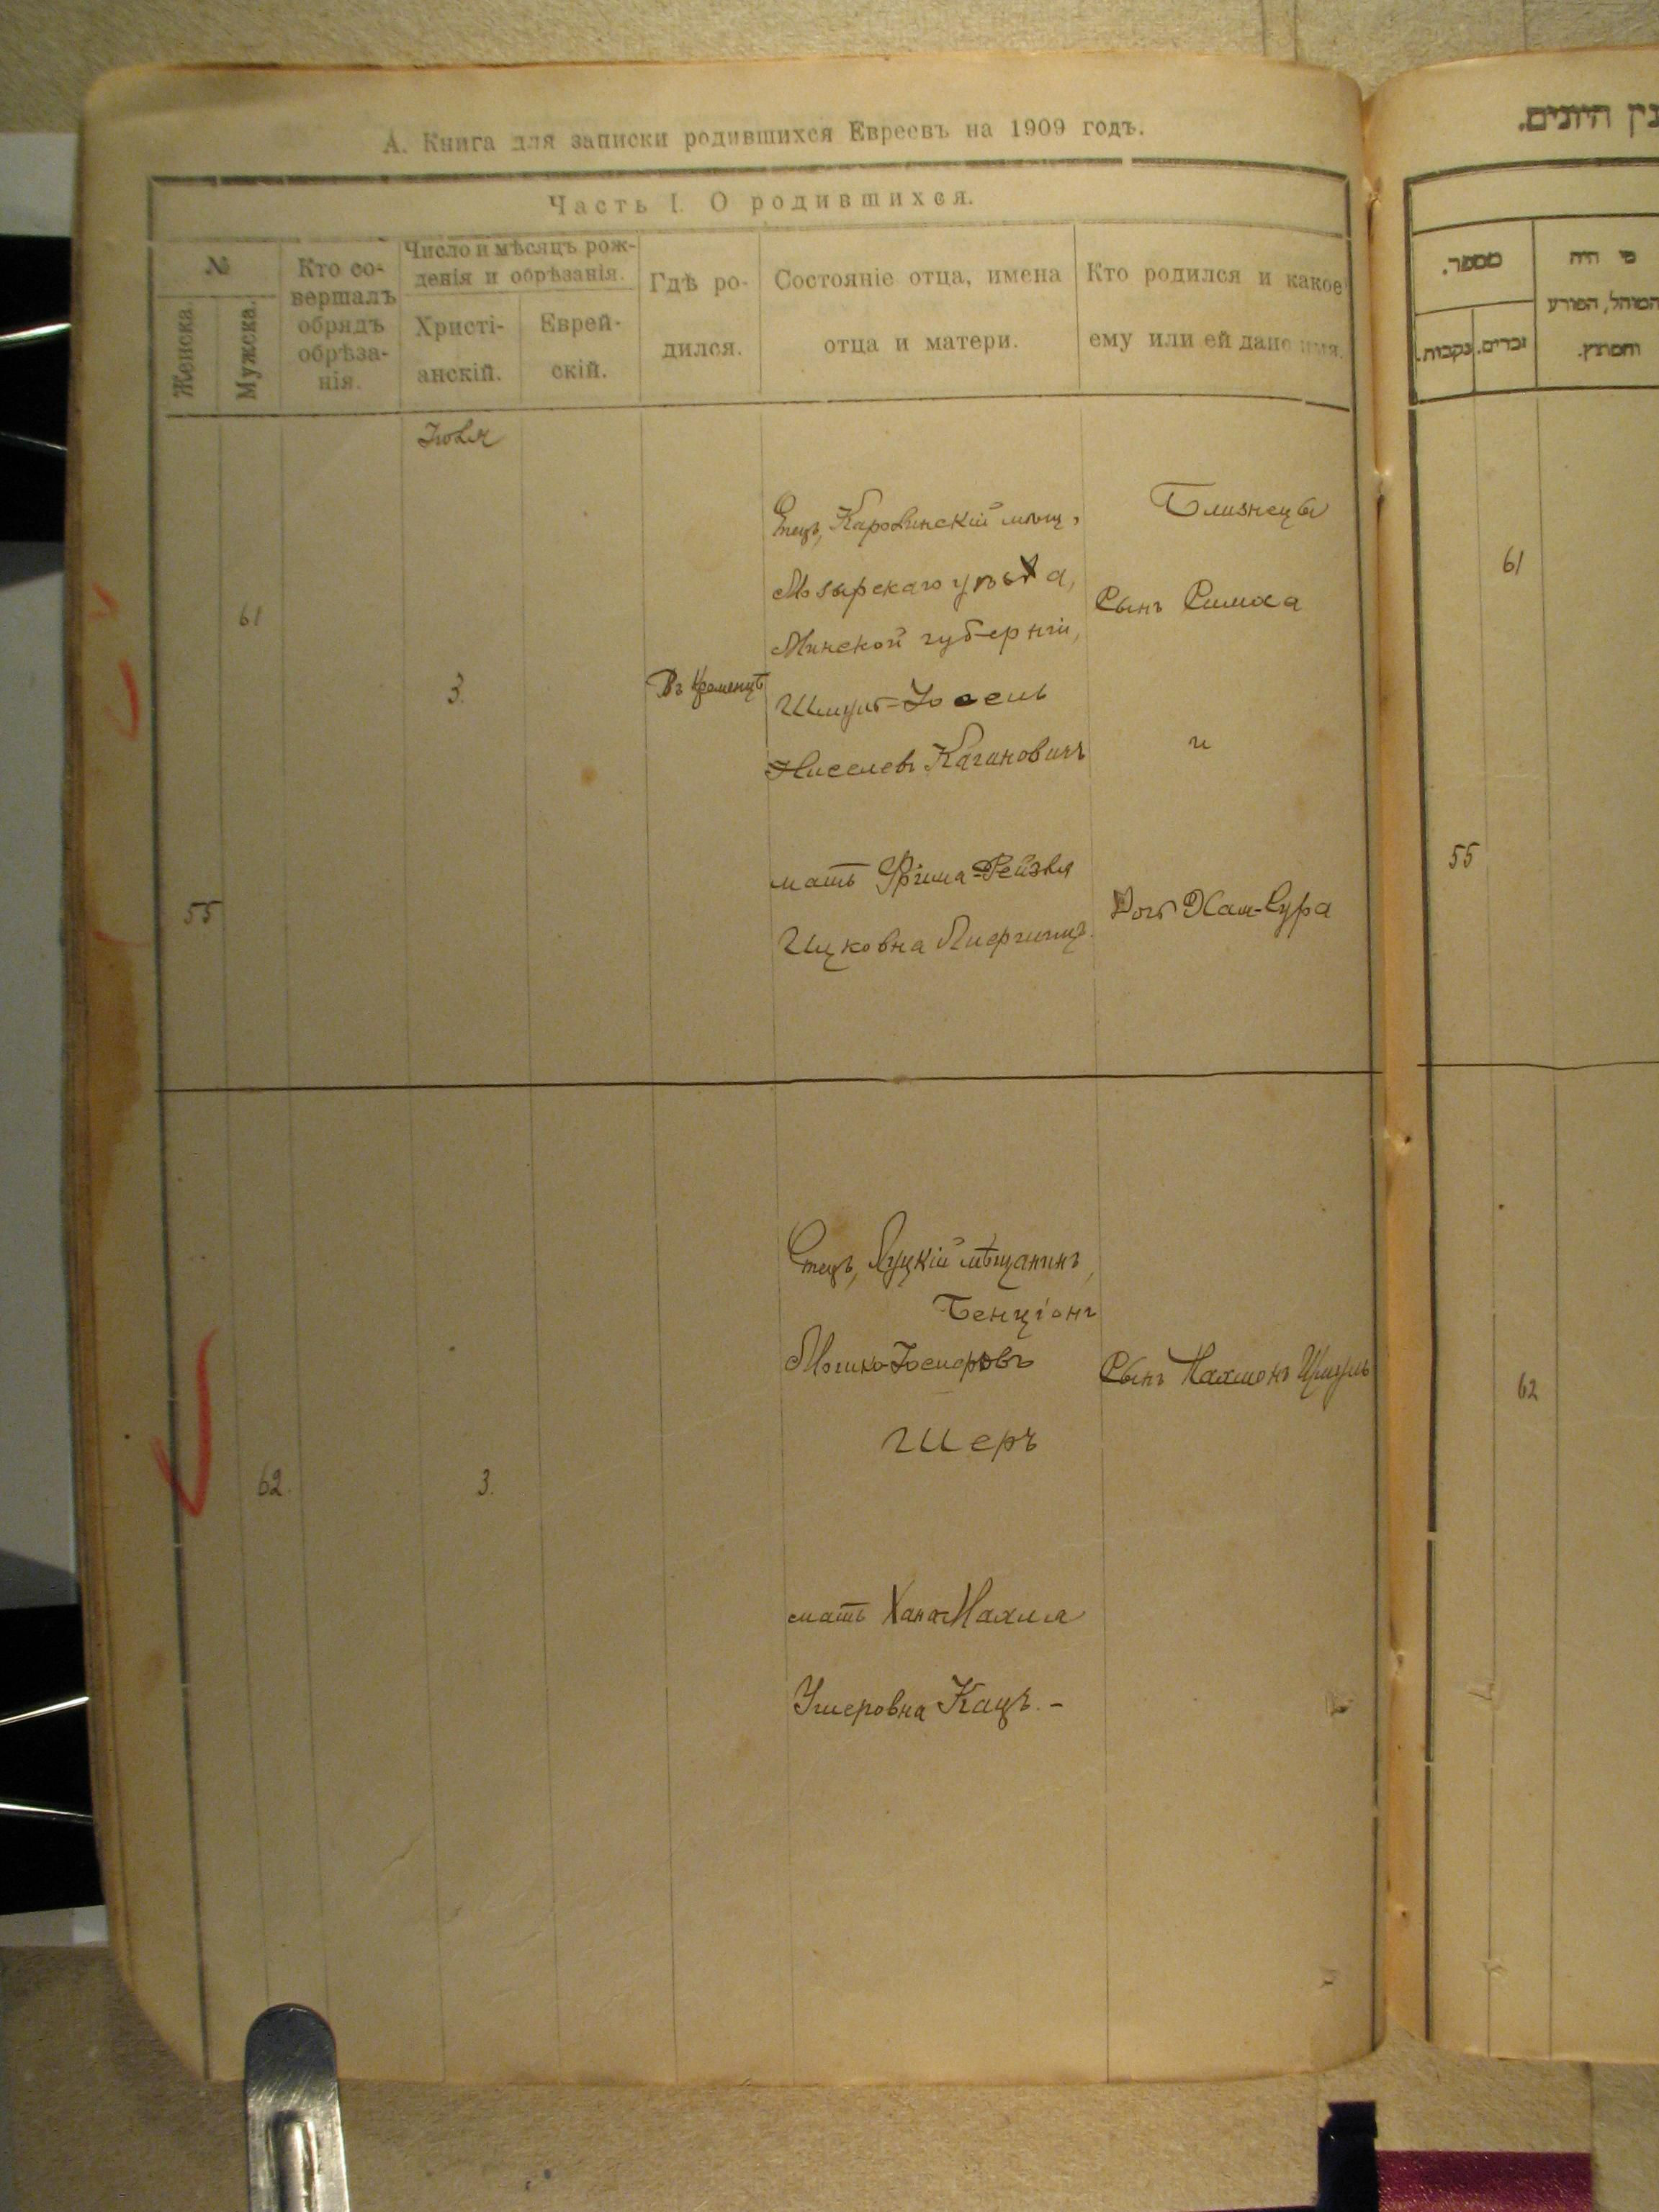 А. Книга для записки родившихся Евреевъ на 1909 годъ.
Часть I. О родившихся.
№
Женска.
Мужска.
Кто со-
вершалъ
обрядъ
обрѣза-
нія.
Число и мѣсяцъ рож-
денія и обрѣзанія.
Христі-
анскій.
Еврей-
скій.
Гдѣ ро-
дился.
Состояніе отца, имена
отца и матери.
Кто родился и какое
ему или ей дано имя.
Іюля
61
55
3.
Въ Кременцѣ
Отецъ, Каролинскій мѣщ.
Мозырскаго уѣзда,
Минской губерніи,
Шмуль-Іосель
Нисселевъ Кагановичъ
мать Фрима-Рейзля
Ицковна
Близнецы
Сынъ Симха
и
Дочь Хая-Сура
62.
3.
Отецъ, Луцкій мѣщанинъ,
Бенціонъ
Мошко-Іосифовъ
Шеръ
мать Хана-Махля
Ушеровна Кацъ. -
Сынъ Шмуль
נין היונים.
מספר.
נקבות.
זכרים.
מי היה
המוהל, הפורע
והמוצץ.
61
55
62